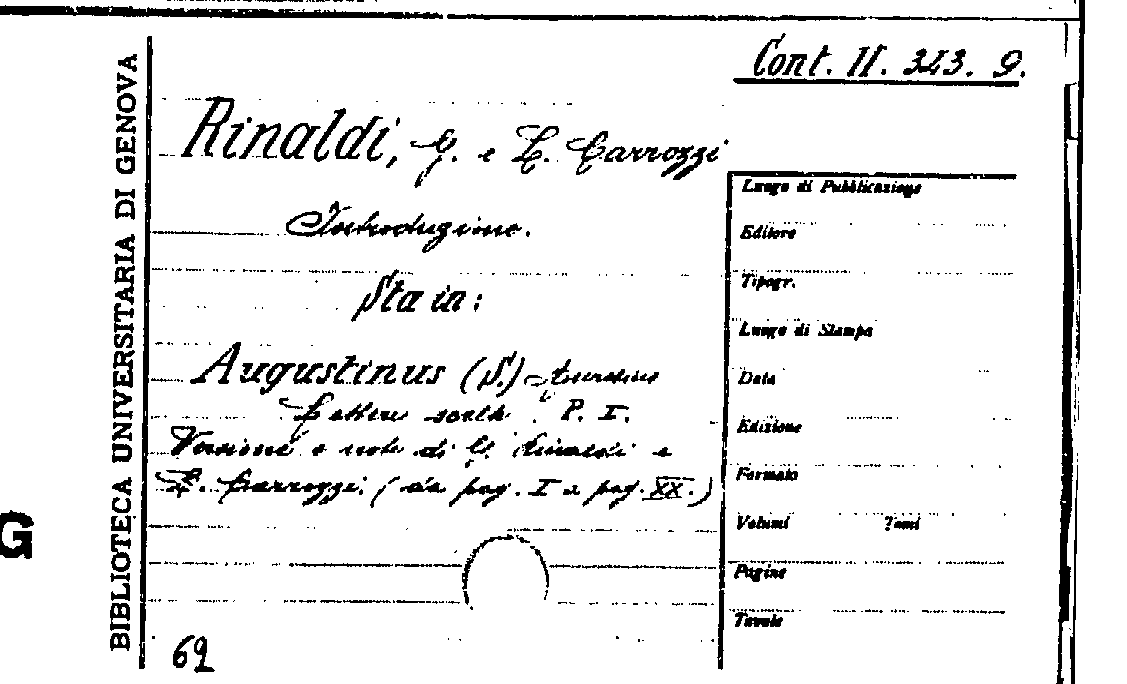 Cont. II. 343. 9.
BIBLIOTECA UNIVERSITARIA DI GENOVA
Rinaldi, G. e L. Carrozzi
Introduzione.
Sta in:
Augustinus (S.) Aurelius
Lettere scelte P. I.
Versione e note di G. Rinaldi e
L. Carrozzi. (da pag. I a pag. XX.)
69
G
Luogo di Pubblicazione
Editore
Tipogr.
Luogo di Stampa
Data
Edizione
Formato
Volumi Tomi
Pagine
Tavole